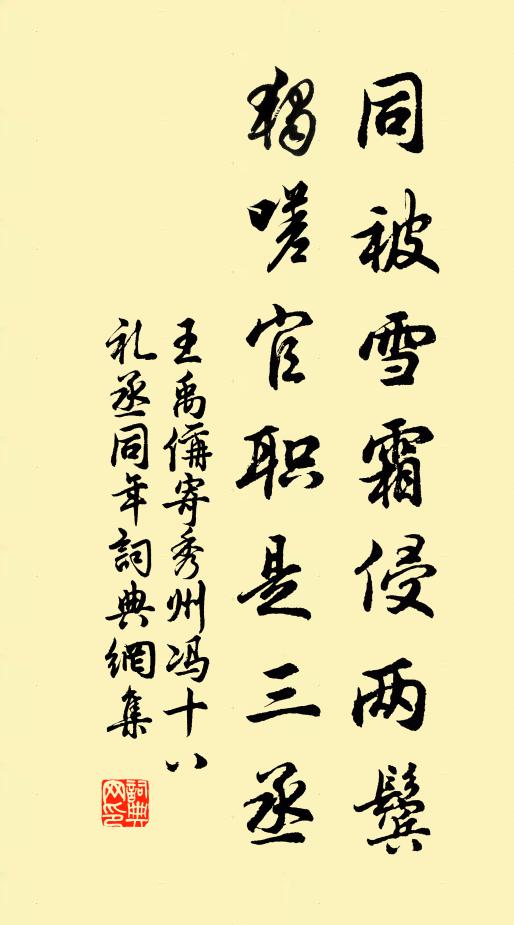 同被雪霜侵两鬓
独嗟官职是三丞
王禹偁寄秀州冯十八
礼丞同年詞典網集
詞典网印